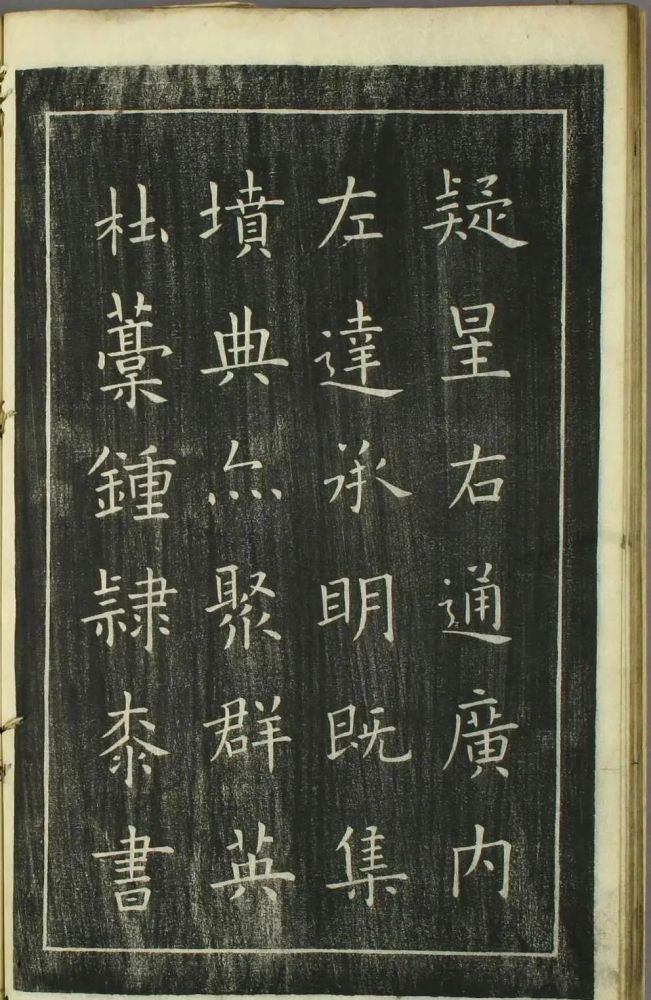 疑星右通廣内
左達承明既集
墳典亦聚群英
杜藁鍾隷桼書